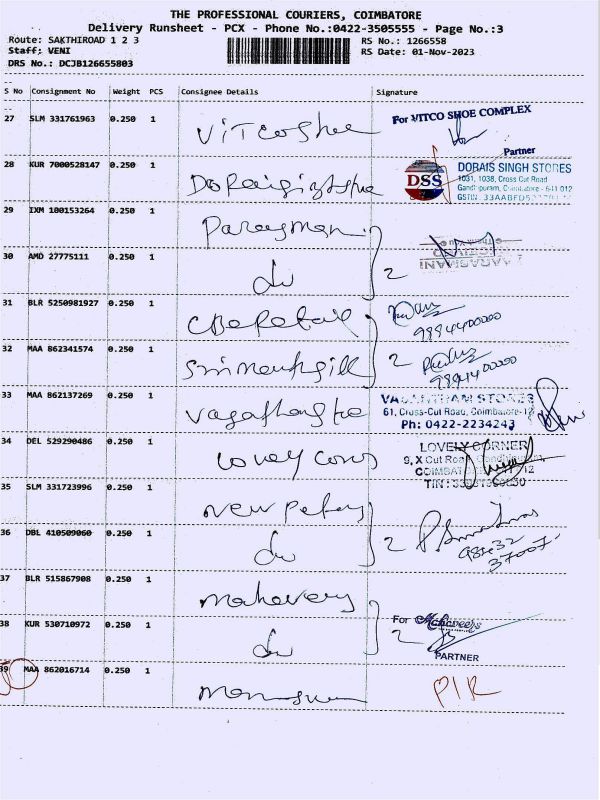 THE PROFESSIONAL COURIERS, COIMBATORE
Delivery Runsheet - PCX - Phone No.:0422-3505555 - Page No.:3
Route: SAKTHIROAD 1 2 3
RS No.: 1266558
Staff: VENI
RS Date: 01-Nov-2023
DRS No.: DCJB126655803
S No Consignment No Weight PCS Consignee Details Signature
27 SLM 331761963 0.250 1 VITCoShee For VITCO SHOE COMPLEX
Partner
28 KUR 7000528147 0.250 1 DSS DORAIS SINGH STORES
1031, 1038, Cross Cut Road
Gandhipuram, Coimbatore - 641 012
GSTIN: 33AABFD5
29 IXM 100153264 0.250 1
30 AMD 27775111 0.250 1 du 2
31 BLR 5250981927 0.250 1 CBeRetail
9894400000
32 MAA 862341574 0.250 1 2
9894400000
33 MAA 862137269 0.250 1 VASANTHAM STORES
61, Cross-Cut Road, Coimbatore-12
Ph: 0422-2234243
34 DEL 529290486 0.250 1 Lovey Corns LOVELY CORNER
9, X Cut Road, Gandhipuram,
COIMBATORE-641 012
TIN:
35 SLM 331723996 0.250 1 New Petey
36 DBL 410509060 0.250 1 du 2
37007
37 BLR 515867908 0.250 1 Mahavery
38 KUR 530710972 0.250 1 du 2 For Mahaveers
PARTNER
39 MAA 862016714 0.250 1 PIR